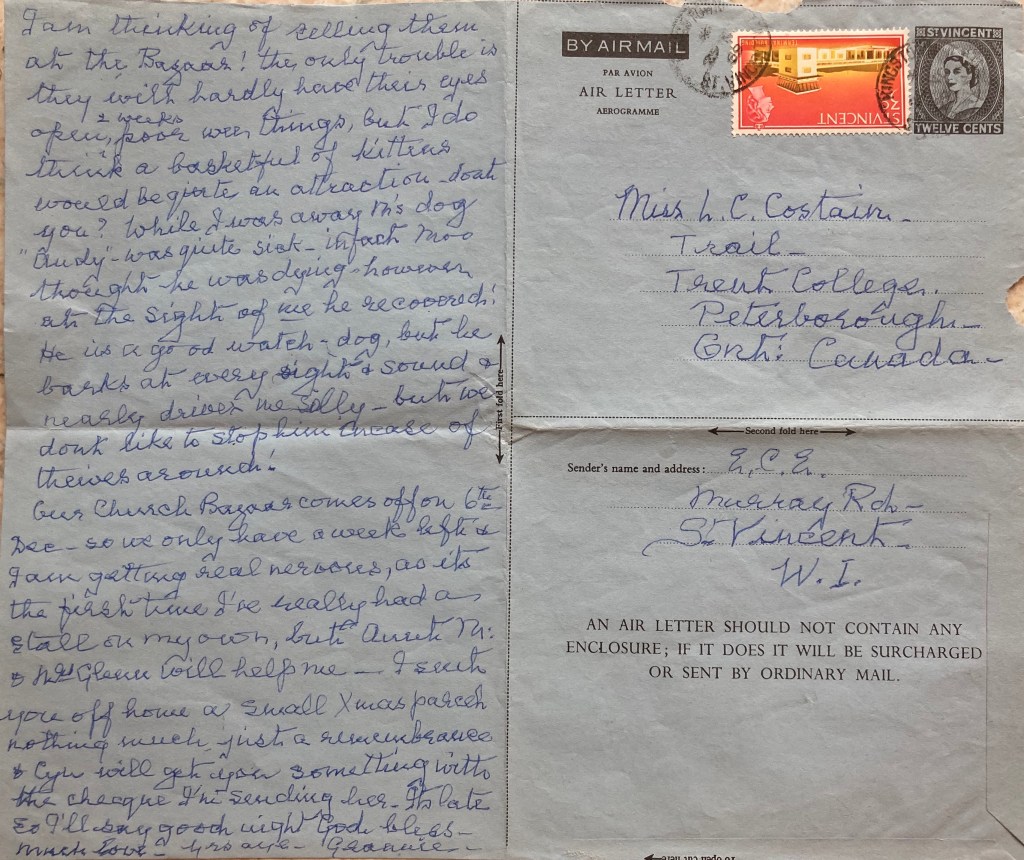 I am thinking of selling them
at the Bazaar! the only trouble is
they will hardly have their eyes
2 weeks
open, poor wee things, but I do
think a basketful of kittens
would be quite an attraction - don't
you? While I was away M's dog
"Andy" - was quite sick - in fact Moo
thought he was dying - however
at the sight of me he recovered!
He is a good watch-dog, but he
barks at every sight & sound &
nearly drives me silly - but we
don't like to stop him incase of
theives around!
Our Church Bazaar comes off on 6th
Dec - so we only have a week left &
I am getting real nervous, as its
the first time I've really had a
stall on my own, but Aunt M:
& Mrs Glenn will help me - I sent
you off home a small Xmas parcel
nothing much, just a remembrance
& Cyn will get you something with
the cheque I'm sending her - Its late
so I'll say good night God bless -
much love - yrs aye - Grannie -
BY AIR MAIL
PAR AVION
AIR LETTER
AEROGRAMME
ST. VINCENT
ST VINCENT
KINGST
ST VINCENT
TWELVE CENTS
Miss L. C. Costain -
Trail -
Trent College.
Peterborough -
Ont: Canada -
First fold here
Second fold here
Sender's name and address: E. C. E.
Murray Rd -
St Vincent -
W. I.
AN AIR LETTER SHOULD NOT CONTAIN ANY
ENCLOSURE; IF IT DOES IT WILL BE SURCHARGED
OR SENT BY ORDINARY MAIL.
To open cut here